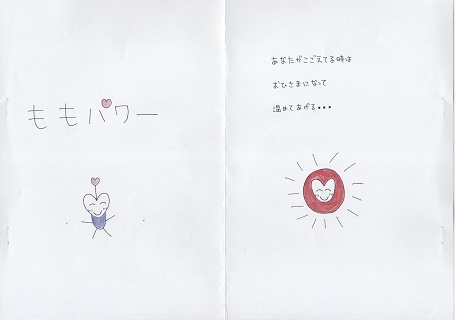 ももパワー
あなたがこごえてる時は
おひさまになって
温めてあげる・・・